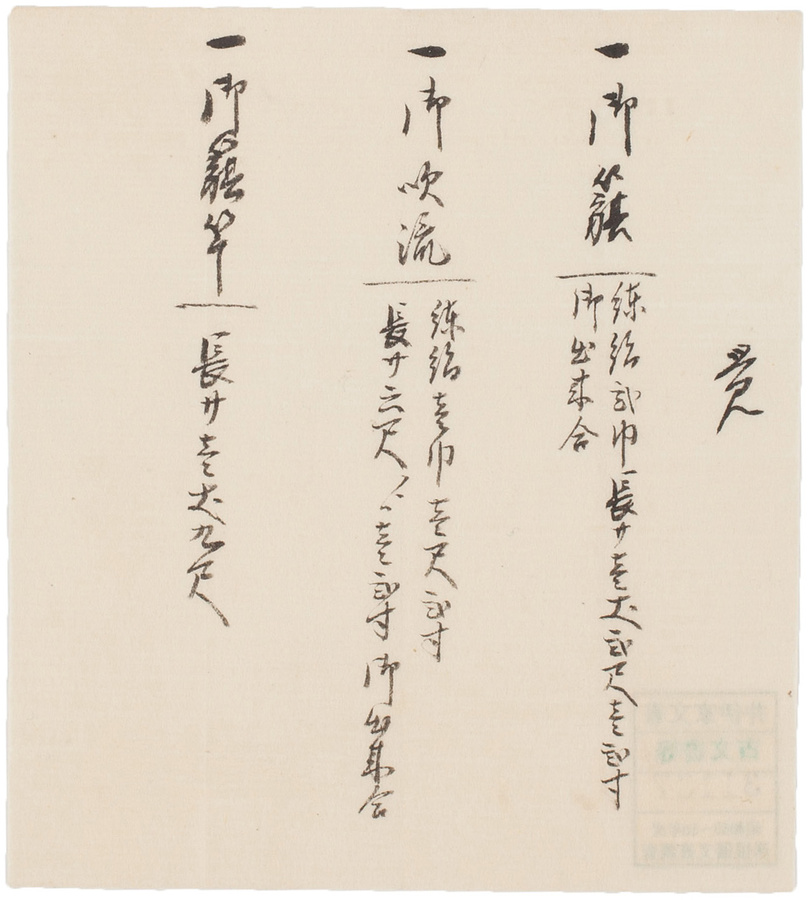 覚
一御籏
練絹弐巾長サ壱丈弐尺壱弐寸
御出来合
一御吹流
練絹壱巾壱尺弐寸
長サ六尺壱弐寸御出来合
一御籏竿
長サ壱丈九尺